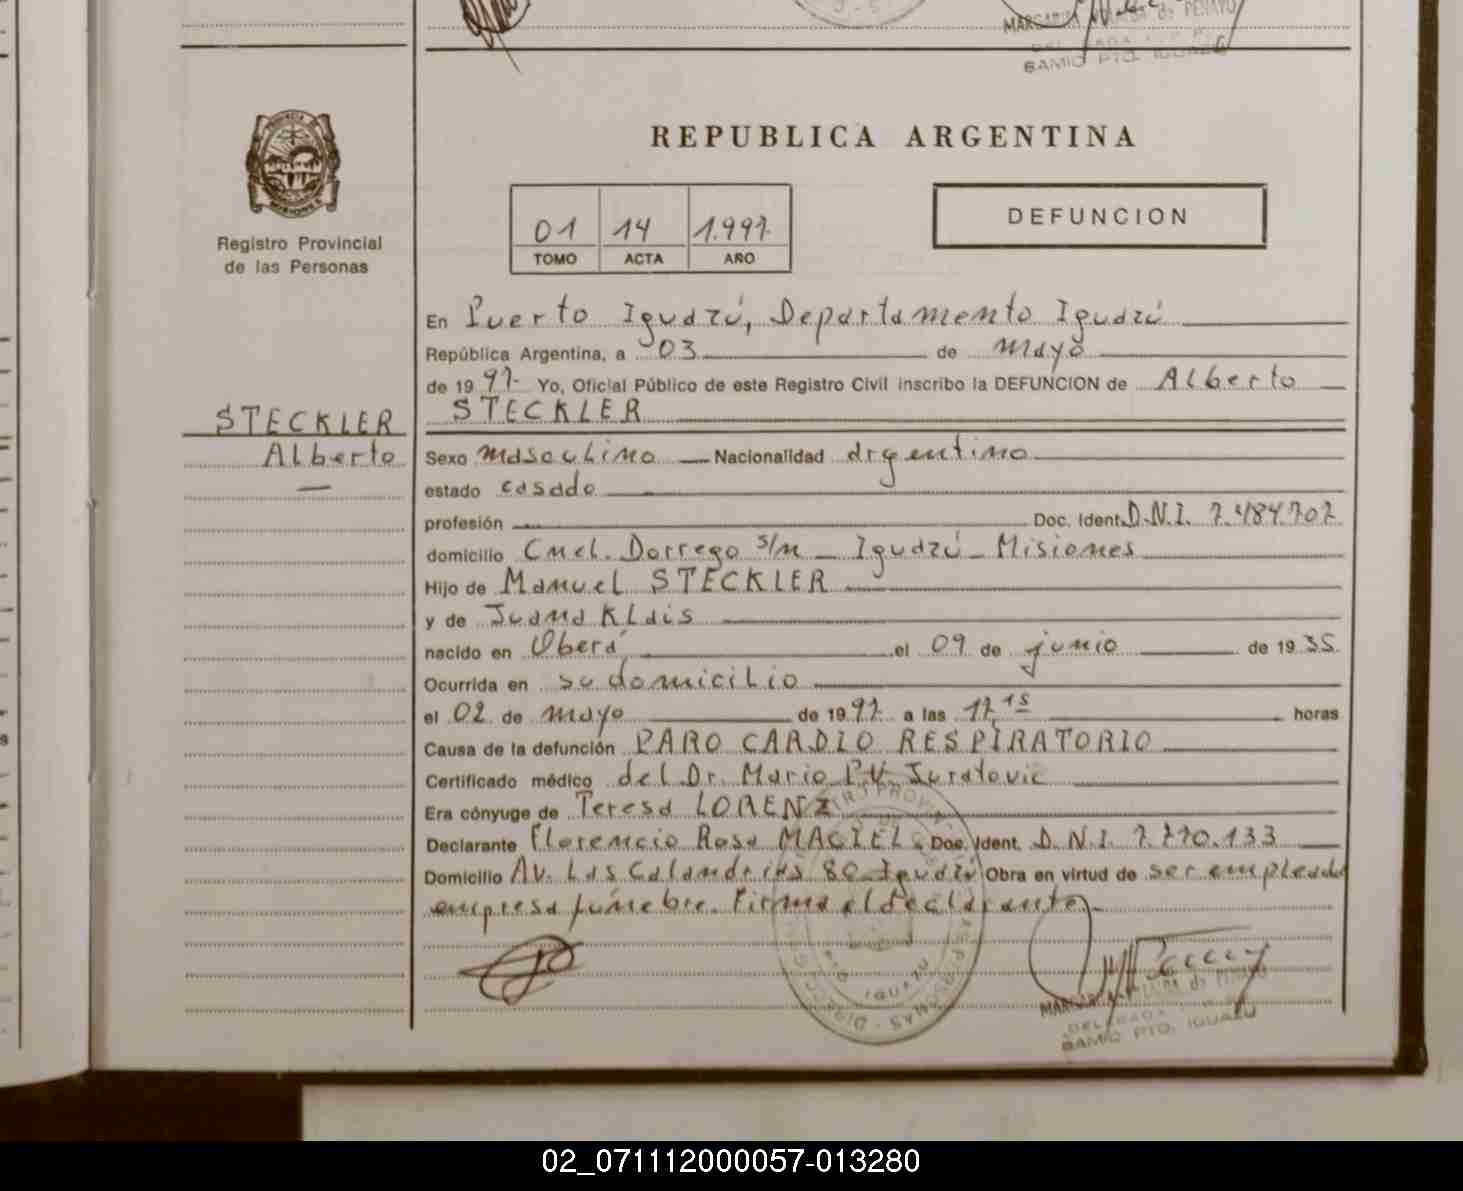 MARGARITA de PENAYO
BAMIO PTO. IGUAZU
Registro Provincial
de las Personas
REPUBLICA ARGENTINA
01 14 1.997
TOMO ACTA AÑO
DEFUNCION
En Puerto Iguazú, Departamento Iguazú
República Argentina, a 03 de mayo
de 19 97 Yo, Oficial Público de este Registro Civil inscribo la DEFUNCION de Alberto
STECKLER
STECKLER
Alberto
Sexo masculino Nacionalidad argentino
estado casado
profesión Doc. Ident. D.N.I. 7.484.707
domicilio Cnel. Dorrego s/n - Iguazú - Misiones
Hijo de Manuel STECKLER
y de Juana Klais
nacido en Oberá el 09 de junio de 19 35
Ocurrida en su domicilio
el 02 de mayo de 19 97 a las 17,15 horas
Causa de la defunción PARO CARDIO RESPIRATORIO
Certificado médico del Dr. Mario P.V. Juratovic
Era cónyuge de Teresa LORENZ
Declarante Florencio Rosa MACIEL Doc. Ident. D.N.I. 7.770.133
Domicilio Av. Las Calandrias 80 Iguazú Obra en virtud de ser empleado
empresa fúnebre. Firma el declarante.-
PTO IGUAZU
MARGARITA de PENAYO
DELEGADA
BAMIO PTO. IGUAZU
02_071112000057-013280